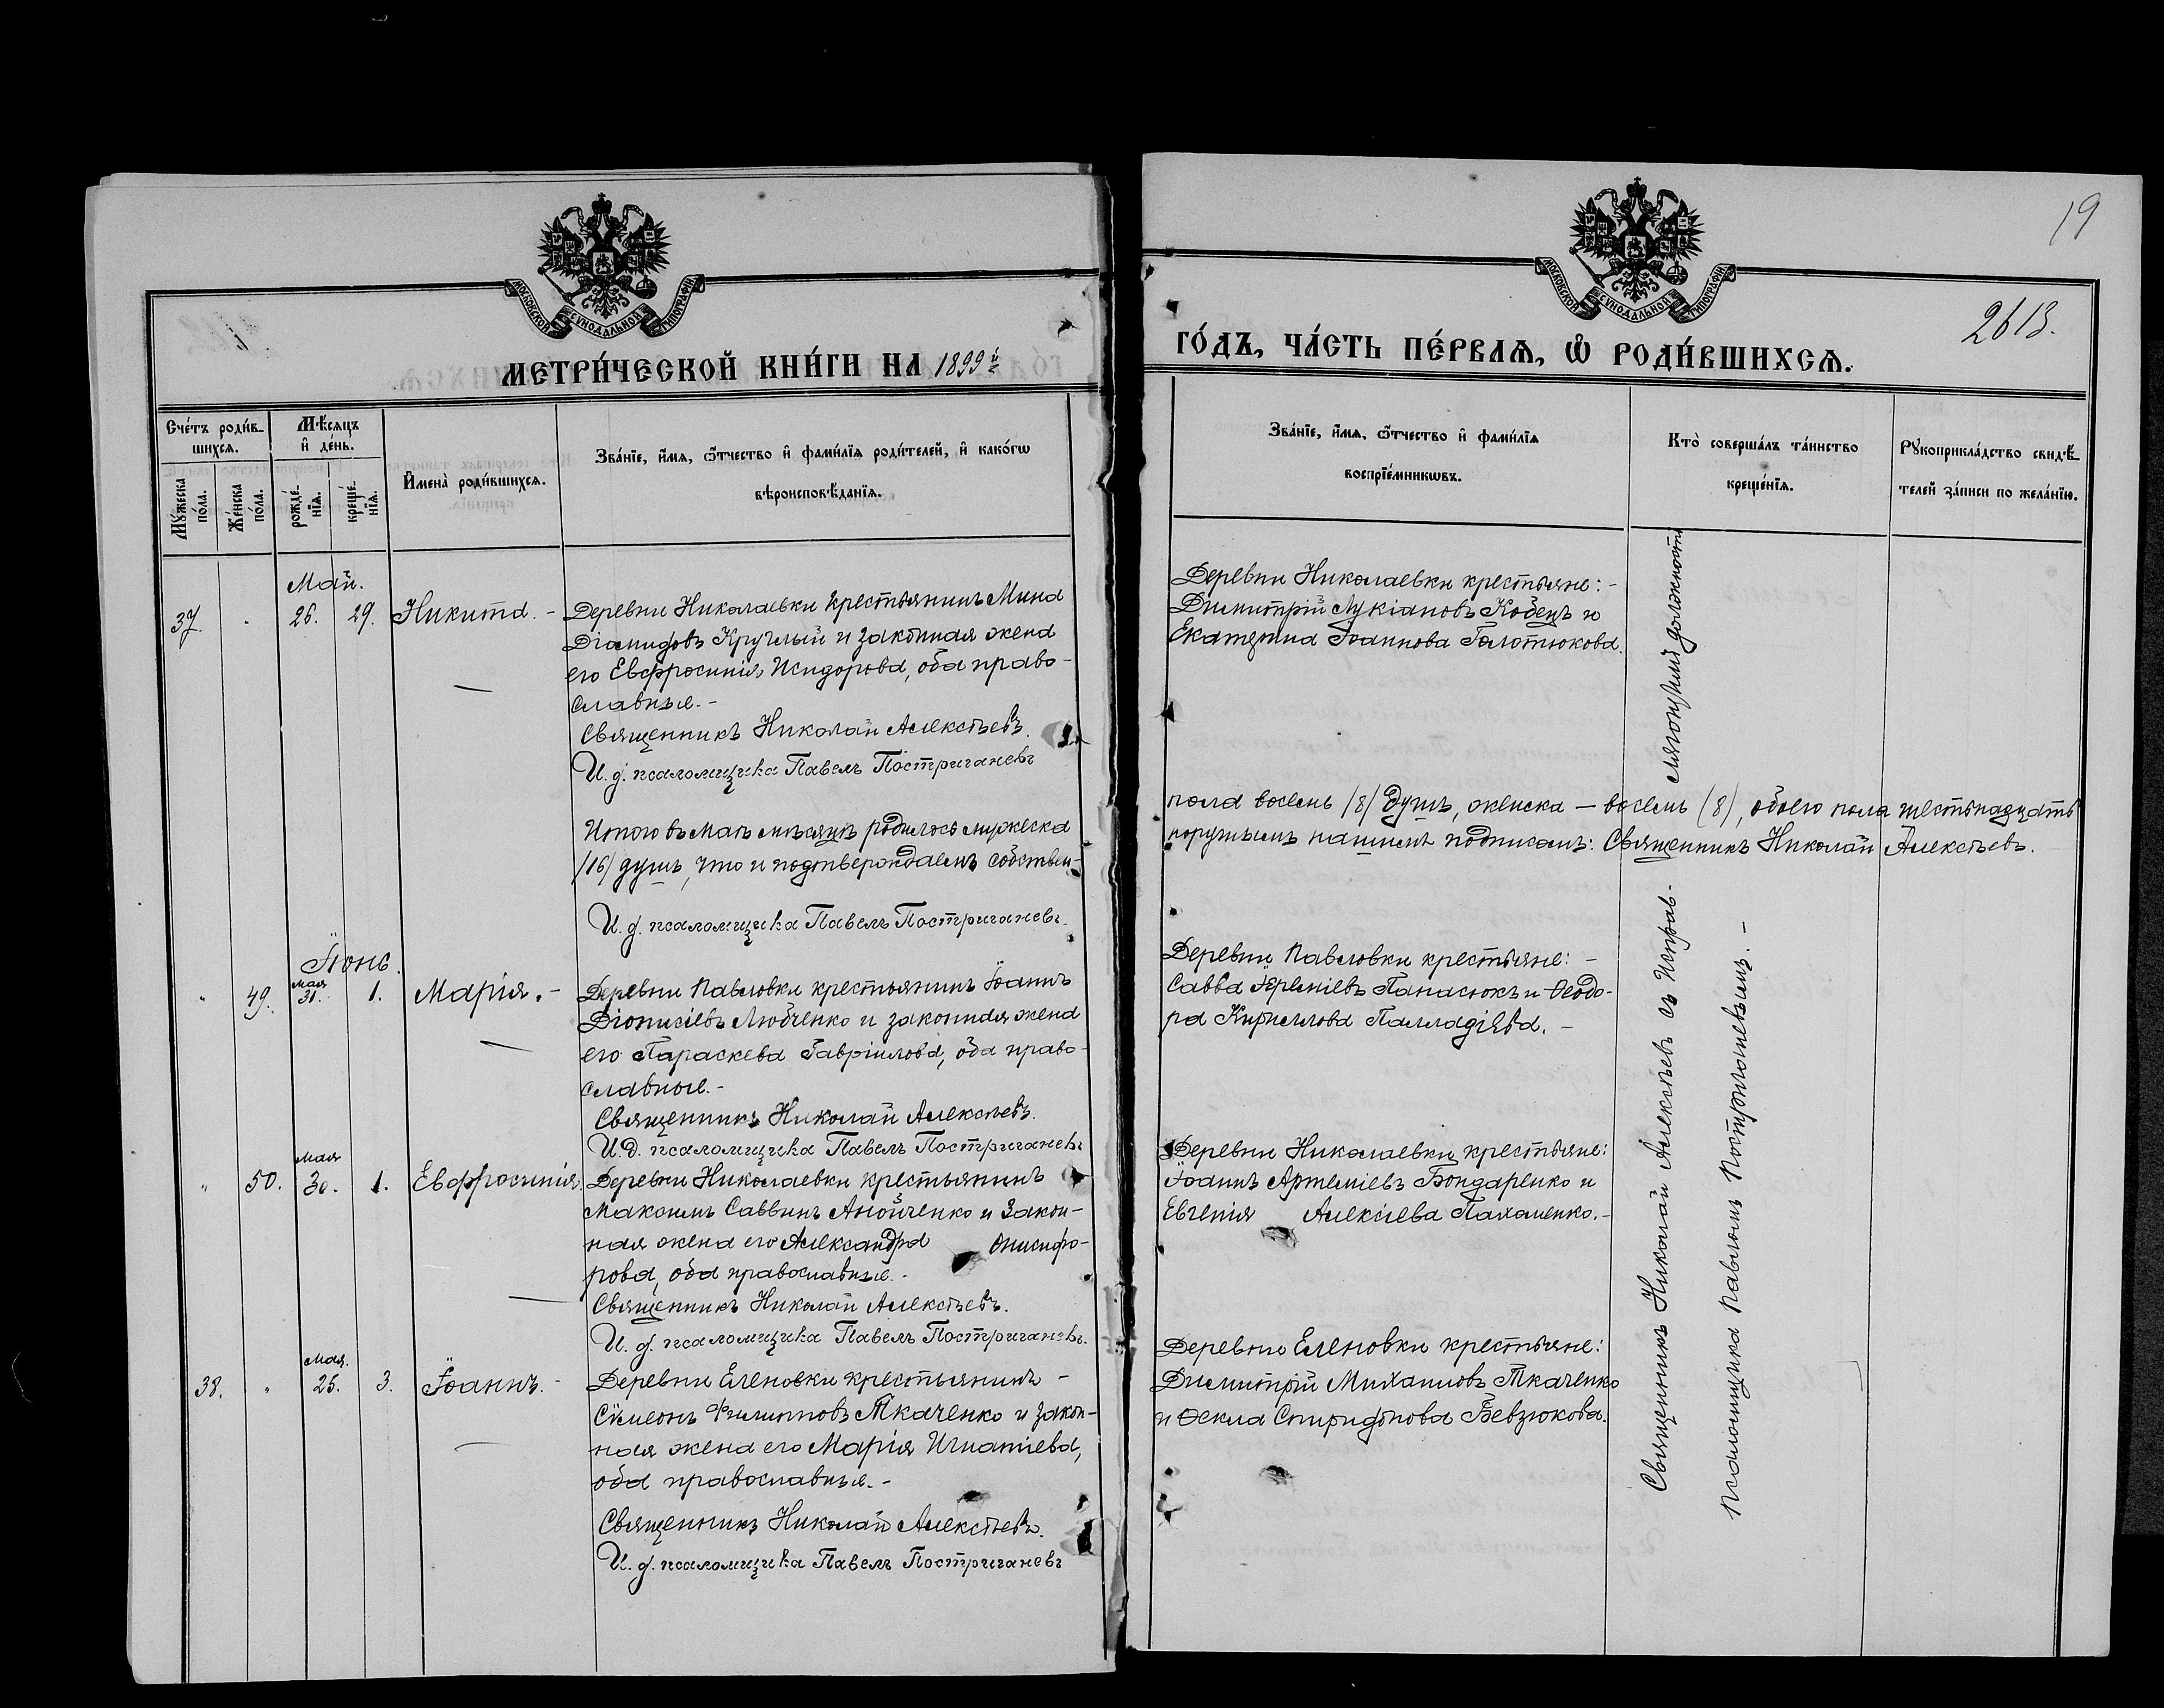 19
2613.
МОСКОВСКОЙ СУНОДАЛЬНОЙ ТИПОГРАФІИ
МОСКОВСКОЙ СУНОДАЛЬНОЙ ТИПОГРАФІИ
МЕТРИ́ЧЕСКОЙ КНИ́ГИ НА 1899й
ГО́ДЪ, ЧА́СТЬ ПЕ́РВАѦ, Ѽ РОДИ́ВШИХСѦ.
Сче́тъ роди́в-
шихсѧ.
Мѣ́сѧцъ
и҆ де́нь.
Мꙋ́жеска
по́ла.
Же́нска
по́ла.
рожде́-
нїѧ.
креще́-
нїѧ.
И҆мена̀ роди́вшихсѧ.
Зва́нїе, и҆́мѧ, ѻ҆́тчество и҆ фами́лїѧ роди́телей, и҆ како́гѡ
вѣроисповѣ́данїѧ.
Зва́нїе, и҆́мѧ, ѻ҆́тчество и҆ фами́лїѧ
воспрїе́мникѡвъ.
Кто̀ соверша́лъ та́инство
креще́нїѧ.
Рꙋкоприкла́дство свидѣ́-
телей за́писи по жела́нїю.
Май.
37. " 26. 29. Никита. -
Деревни Николаевки крестьянинъ Мина
Діомидовъ Круглый и законная жена
его Евфросинія Исидорова, оба право-
славные. -
Священникъ Николай Алексѣевъ.
И. д. псаломщика Павелъ Постригачевъ
Деревни Николаевки крестьяне: -
Димитрій Лукіановъ Кобецъ и
Екатерина Іоаннова Голотюкова.
Итого въ маѣ мѣсяцѣ родилось мужеска
пола восемь /8/ душъ, женска — восемь (8), обоего пола шестьнадцать
/16/ душъ, что и подтверждаемъ собствен-
норучнымъ нашимъ подписомъ: Священникъ Николай Алексѣевъ.
И. д. псаломщика Павелъ Постригачевъ.
Іюнь.
" 49. мая 31. 1. Марія. -
Деревни Павловки крестьянинъ Іоаннъ
Діонисіевъ Любченко и законная жена
его Параскева Гавріилова, оба право-
славные. -
Священникъ Николай Алексѣевъ.
И. д. псаломщика Павелъ Постригачевъ
Деревни Павловки крестьяне: -
Савва Іереміевъ Панасюкъ и Ѳеодо-
ра Кириллова Палладіева. -
" 50. мая 30. 1. Евфросинія.
Деревни Николаевки крестьянинъ
Максимъ Саввинъ Анойченко и закон-
ная жена его Александра Онисифо-
рова, оба православные. -
Священникъ Николай Алексѣевъ.
И. д. псаломщика Павелъ Постригачевъ.
Деревни Николаевки крестьяне:
Іоаннъ Артеміевъ Бондаренко и
Евгенія Алексіева Пахаменко. -
38. " мая. 25. 3. Іоаннъ. -
Деревни Еленовки крестьянинъ -
Сѵмеонъ Филипповъ Ткаченко и закон-
ная жена его Марія Игнатіева,
оба православные. -
Священникъ Николай Алексѣевъ.
И. д. псаломщика Павелъ Постригачевъ
Деревни Еленовки крестьяне:
Димитрій Михаиловъ Ткаченко
и Ѳекла Спиридонова Бевзюкова.
Священникъ Николай Алексѣевъ съ Исправ-
ляющимъ должность
псаломщика Павломъ Постригачевымъ. -